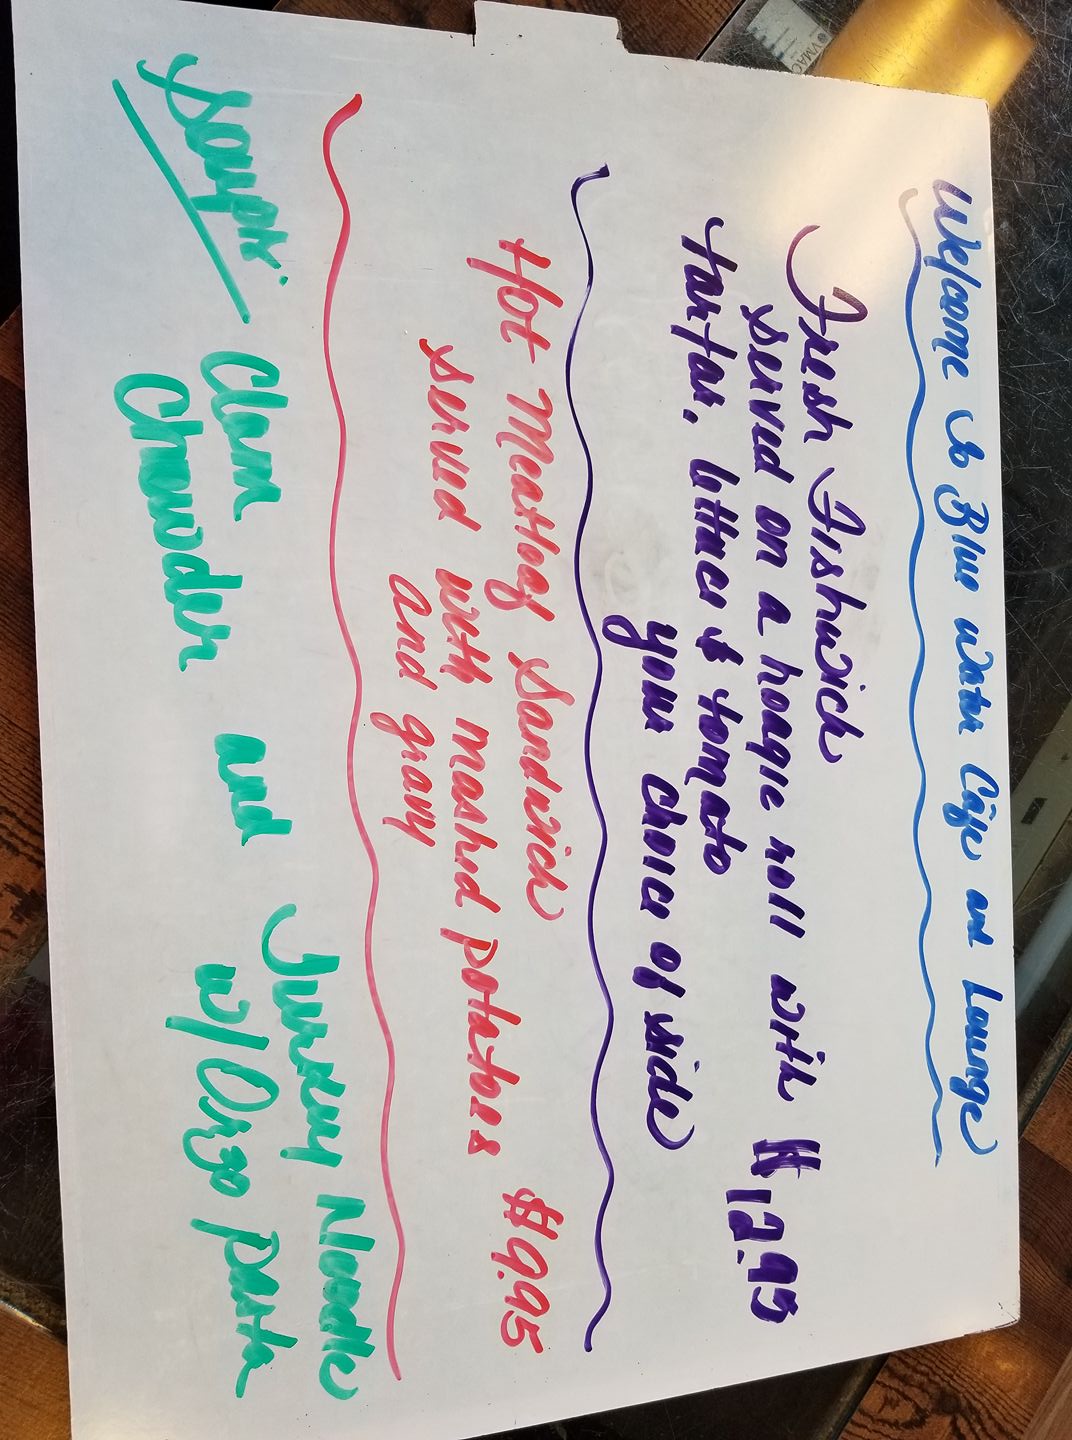 Welcome to Blue Water Cafe and Lounge
Fresh Fishwich
served on a hoagie roll with
tartar, lettuce & tomato
your choice of side
$12.95
Hot Meatloaf Sandwich
served with mashed potatoes
and gravy
$9.95
Soups: Clam
Chowder
and
Turkey Noodle
w/ Orzo pasta
VMAC